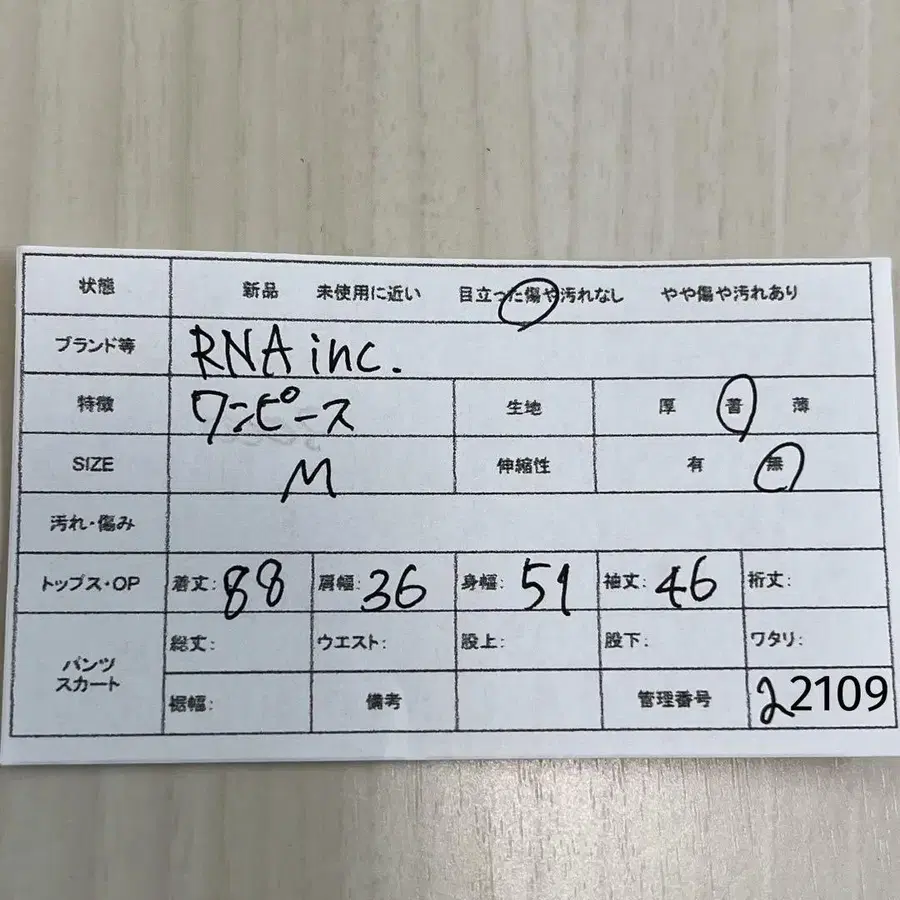 状態 新品 未使用に近い 目立った傷や汚れなし やや傷や汚れあり
ブランド等 RNA inc.
特徴 ワンピース 生地 厚 普 薄
SIZE M 伸縮性 有 無
汚れ・傷み
トップス・OP 着丈: 88 肩幅: 36 身幅: 51 袖丈: 46 裄丈:
パンツ スカート 総丈: ウエスト: 股上: 股下: ワタリ:
裾幅: 備考 管理番号 22109